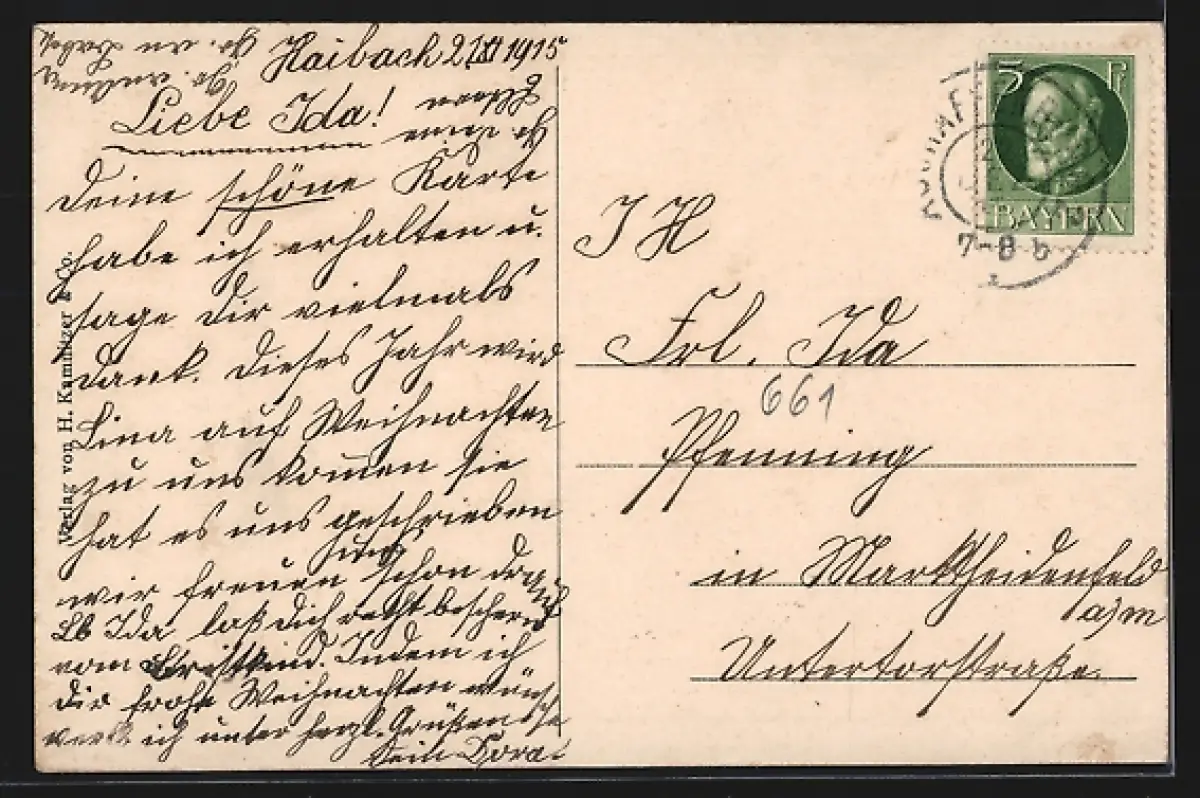 Haibach 21 XII 1915
Liebe Ida!
Deine schöne Karte
habe ich erhalten u.
sage Dir vielmals
Dank. Dieses Jahr wird
Lina auf Weihnachten
zu uns kom̄en sie
hat es uns geschrieben
wir freuen schon drauf
Lb Ida laß dich recht bescheren
vom Christkind. Indem ich
Dir frohe Weihnachten wünsche
ich unter herzl. Grüßen
Dein Dora
Verlag von H. Kamnitzer & Co.
5 Pf
BAYERN
7-8 b
I H
Frl. Ida
661
Pfenning
in Marktheidenfeld
a/m
Untertorstraße